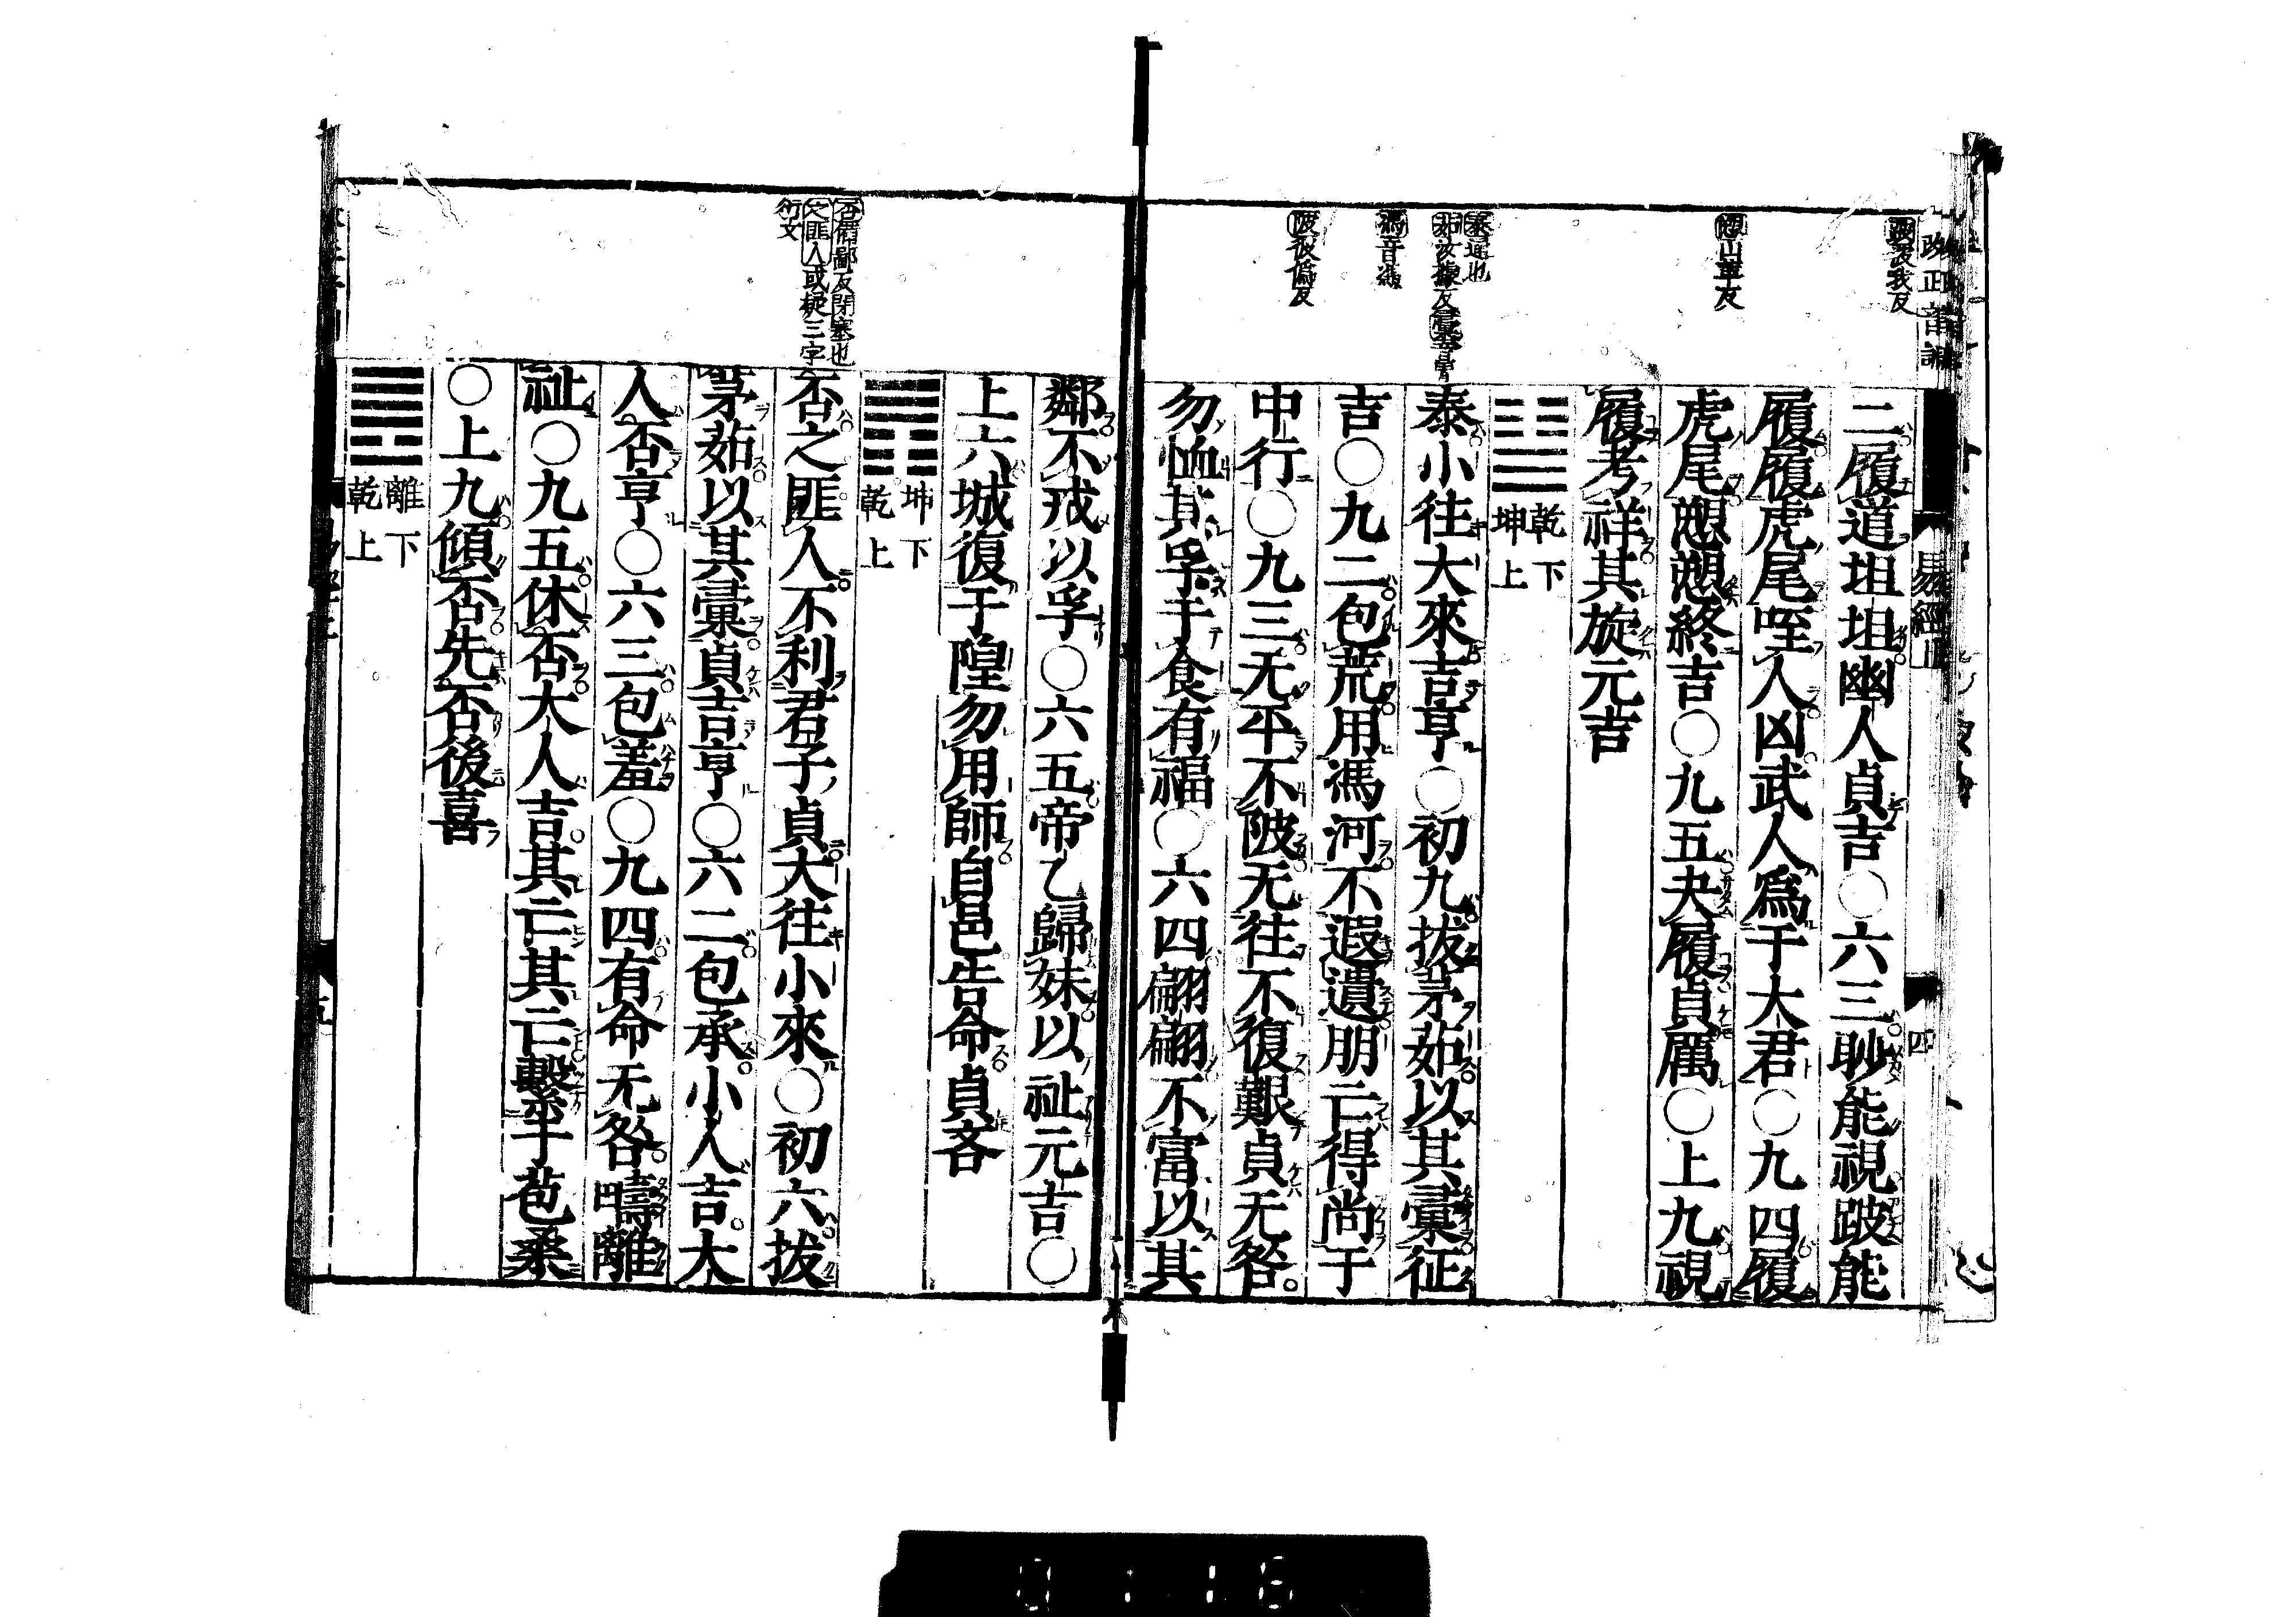 跛波我反
愬山革反
泰通也
茹汝據反彙音胃
馮音憑
陂彼僞反
易經上
四
二履道坦坦幽人貞吉○六三眇能視跛能
履履虎尾咥人凶武人爲于大君○九四履
虎尾愬愬終吉○九五夬履貞厲○上九視
履考祥其旋元吉
乾下
坤上
泰小往大來吉亨○初九拔茅茹以其彙征
吉○九二包荒用馮河不遐遺朋亡得尚于
中行○九三无平不陂无往不復艱貞无咎
勿恤其孚于食有福○六四翩翩不富以其
鄰不戒以孚○六五帝乙歸妹以祉元吉○
上六城復于隍勿用師自邑告命貞吝
坤下
乾上
否備鄙反閉塞也
之匪人或疑三字
衍文
否之匪人不利君子貞大往小來○初六拔
茅茹以其彙貞吉亨○六二包承小人吉大
人否亨○六三包羞○九四有命无咎疇離
祉○九五休否大人吉其亡其亡繫于苞桑
○上九傾否先否後喜
離下
乾上
0116